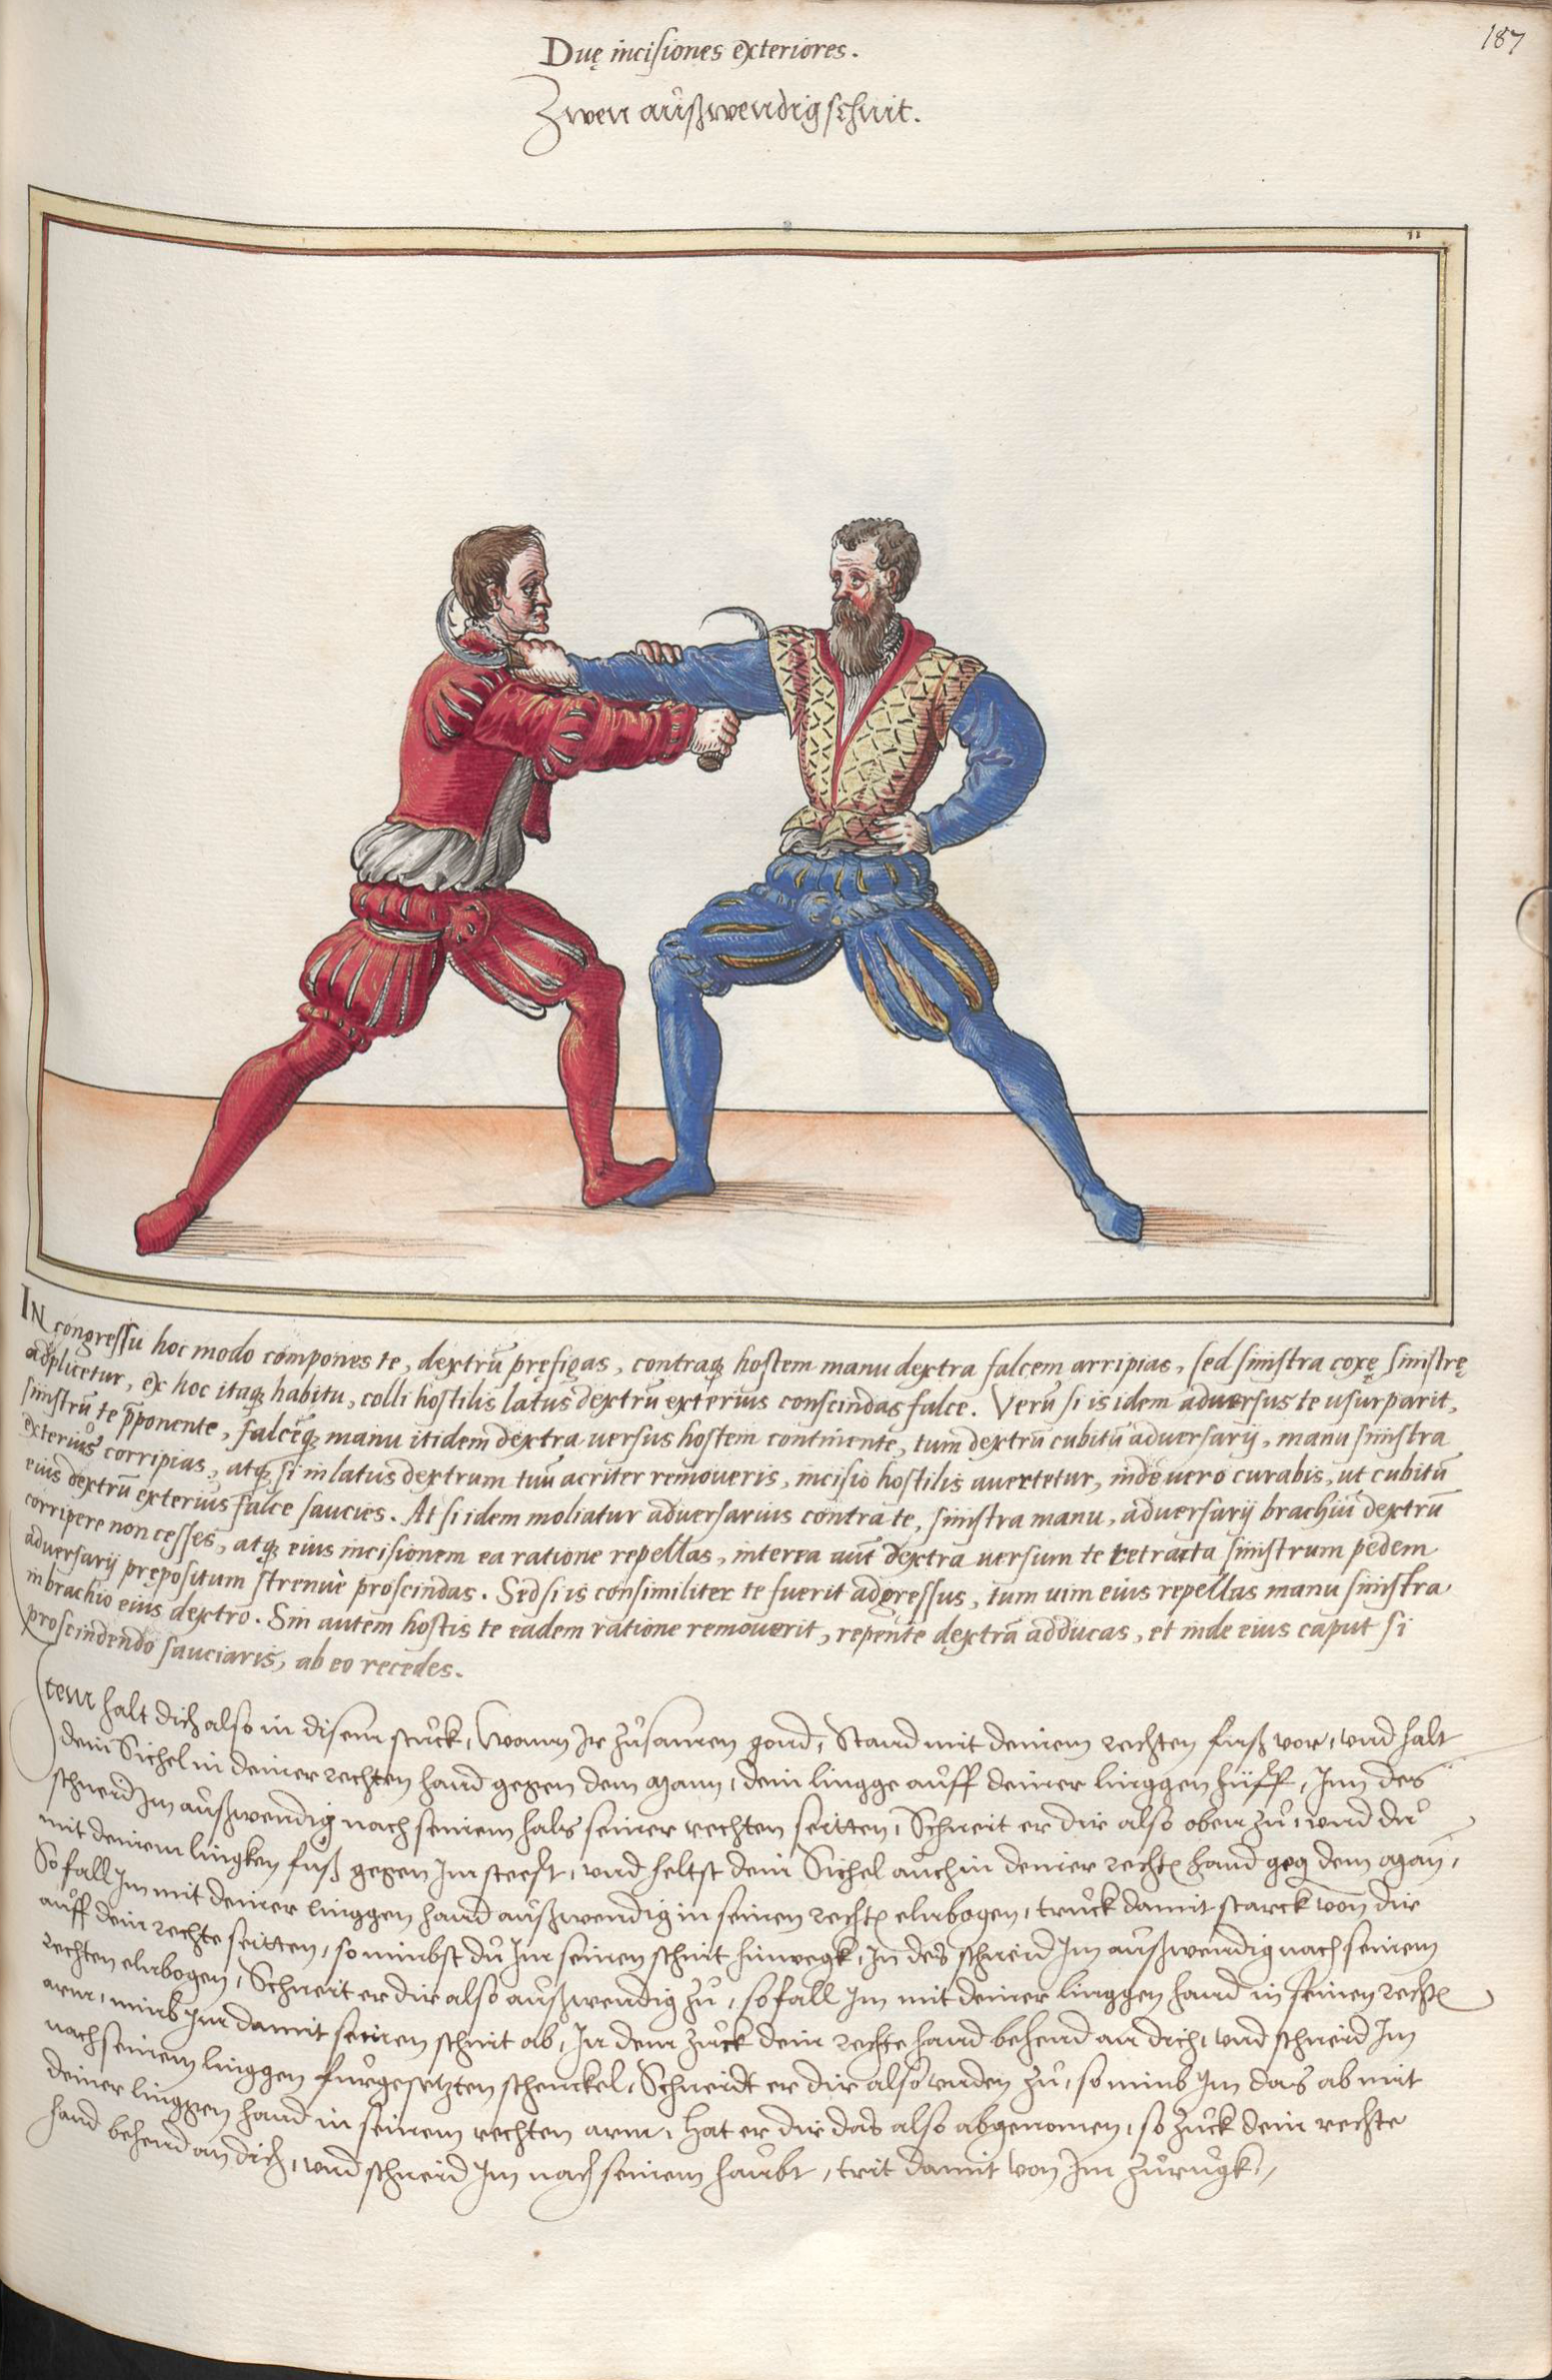 187
Duę incisiones exteriores.
Zwen außwendig schnit.
11
IN congressu hoc modo compones te, dextrũ pręfigas, contraq̃ hostem manu dextra falcem arripias, sed sinistra coxę sinistrę
adplicetur, ex hoc itaq̃ habitu, colli hostilis latus dextrũ exterius conscindas falce. Verũ si is idem aduersus te usurparit,
sinistrũ te p̃ponente, falcẽq̃ manu itidem dextra uersus hostem continente, tum dextrũ cubitũ aduersarij, manu sinistra
exterius corripias, atq̃ si in latus dextrum tuũ acriter remoueris, incisio hostilis auertetur, inde uero curabis, ut cubitũ
eius dextrũ exterius falce saucies. At si idem moliatur aduersarius contra te, sinistra manu, aduersarij brachiũ dextrũ
corripere non cesses, atq̃ eius incisionem ea ratione repellas, interea aut̃ dextra uersum te retracta sinistrum pedem
aduersarij prępositum strenuè proscindas. Sed si is consimiliter te fuerit adgressus, tum uim eius repellas manu sinistra
in brachio eius dextro. Sin autem hostis te eadem ratione remouerit, repente dextrã adducas, et inde eius caput si
proscindendo sauciaris, ab eo recedes.
Item halt dich also in disem stuck, Wann Ir zůsamen gond, Stand mit deinem rechten fuß vor, vnd halt
dein Sichel in deiner rechten hand gegen dem Mann, dein lingge auff deiner linggen hüff, Inn des
schneid Im außwendig nach seinem hals seiner rechten seitten, Schneit er dir also oben zů, vnd du
mit deinem lingken fuß gegen Im steest, vnd heltst dein Sichel auch in deiner rechtẽ hand geg dem Man,
So fall Im mit deiner linggen hand außwendig in seinen rechtẽ elnbogen, truck damit starck von dir
auff dein rechte seitten, so nimbst du Im seinen schnit hinwegk, In des schneid Im außwendig nach seinem
rechten elnbogen, Schneit er dir also außwendig zů, so fall Im mit deiner linggen hand in seinen rechtẽ
arm, nimb Im damit seinen schnit ab, In dem zuck dein rechte hand behend an dich, vnd schneid Im
nach seinem linggen furgesetzten schenckel, Schneidt er dir also vnden zů, so nimb Im das ab mit
deiner linggen hand in seinem rechten arm, Hat er dir das also abgenomen, so zuck dein rechte
hand behend an dich, vnd schneid Im nach seinem haubt, trit damit von Im zůrugk,